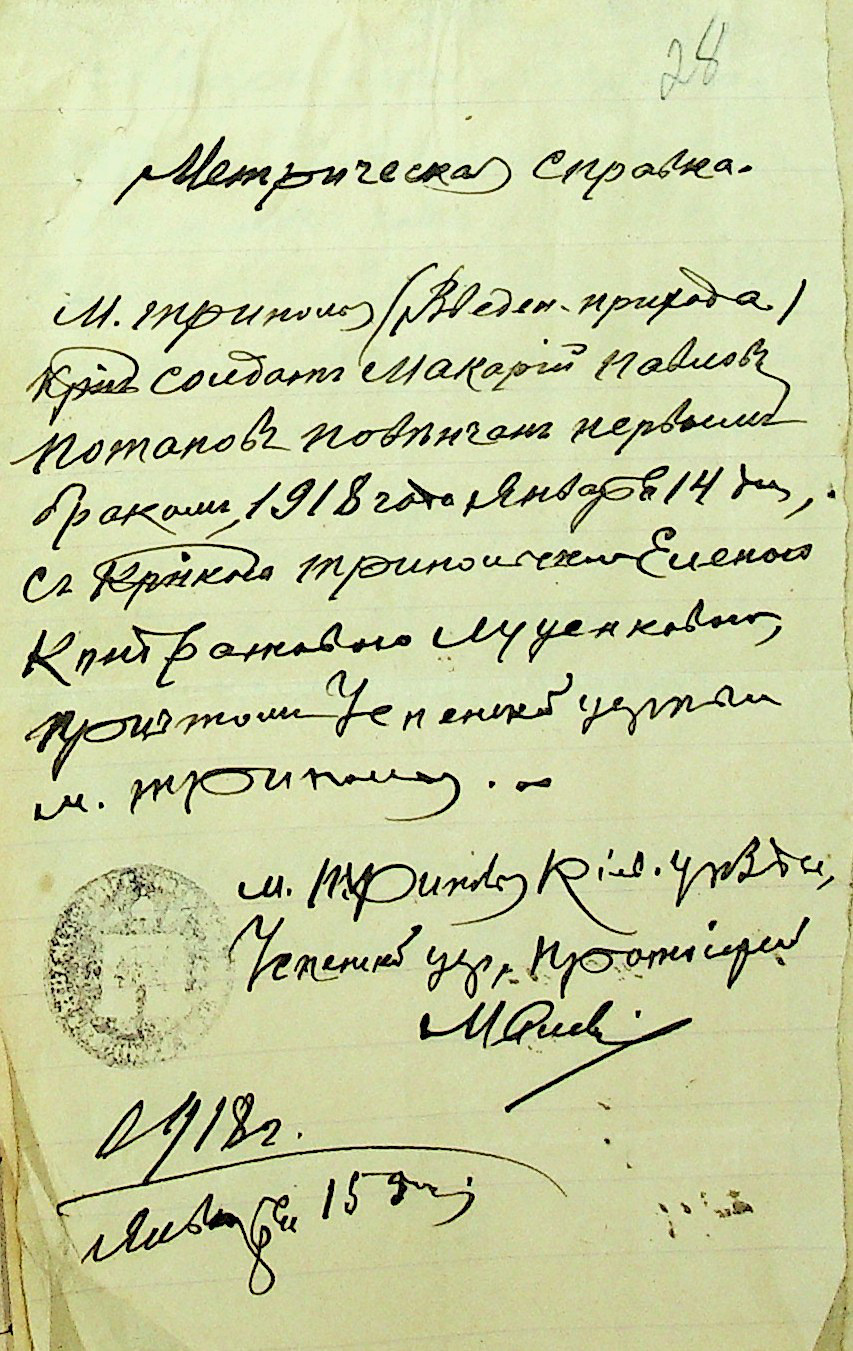 28
Метрическая справка.
М. Триполья (Введен. прихода)
кр-нъ солдатъ Макарій Павловъ
Потаповъ повѣнчанъ первымъ
бракомъ, 1918 года Января 14 дня,
съ Кр-нкою Трипольскою Еленою
Луценковою,
причтомъ Успенской церкви
м. Триполья.
м. Триполья Кіев. уѣзда,
Успенской цер. Протоіерей
1918 г.
Января 15 дня